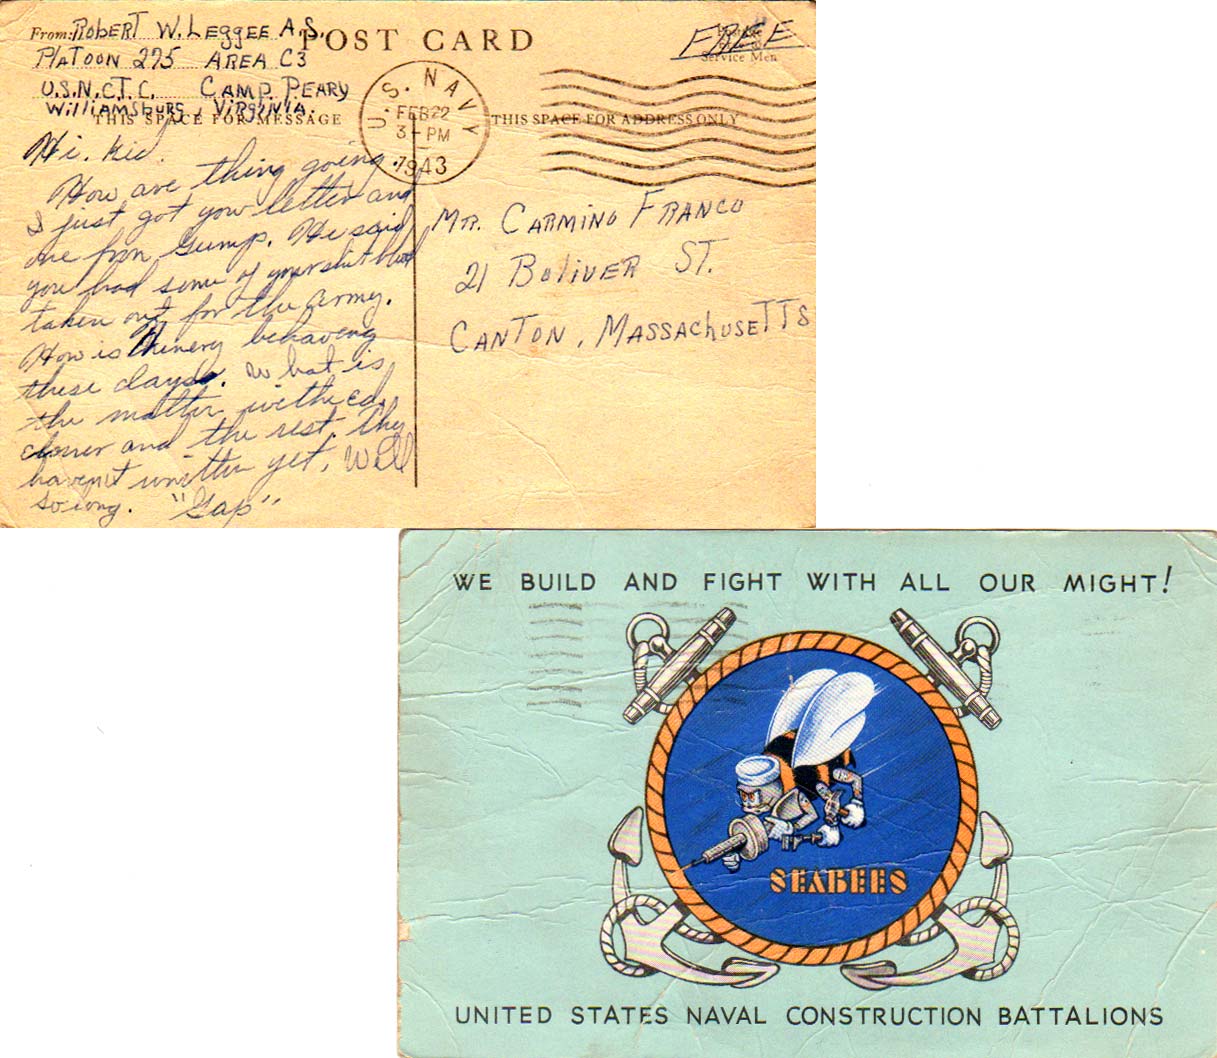 From: Robert W. Leggee A.S.
POST CARD
FREE
Service Men
Platoon 275 Area C3
U.S.N.C.T.C. Camp Peary
Williamsburg, Virginia.
THIS SPACE FOR MESSAGE
U. S. NAVY
FEB 22
3-PM
1943
THIS SPACE FOR ADDRESS ONLY
Hi. Kid.
How are thing going.
I just got your letter and
one from Gump. He said
you had some of your shit blood
taken out for the army.
How is behaveing
these days. What is
the matter with
and the rest. They
haven't written yet. Well
so long. "Gap"
Mr. Carmino Franco
21 Boliver St.
Canton, Massachusetts
WE BUILD AND FIGHT WITH ALL OUR MIGHT!
SEABEES
UNITED STATES NAVAL CONSTRUCTION BATTALIONS